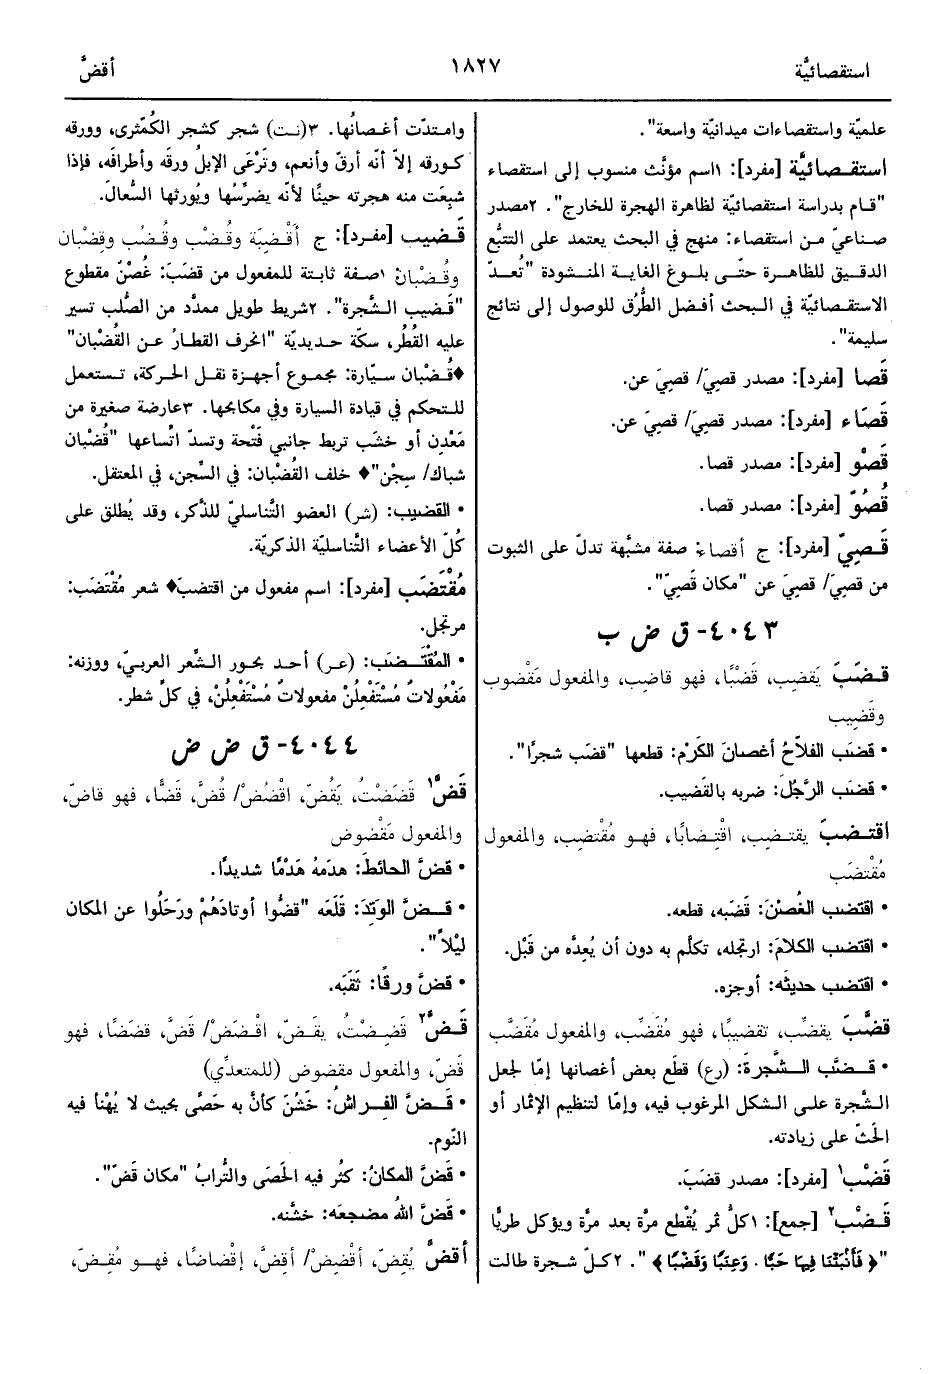 استقصائيَّة
١٨٢٧
أقضَّ
علميّة واستقصاءات ميدانيّة واسعة".
استقـصائيَّة [مفرد]: ١اسم مؤنَّث منسوب إلى استقصاء
"قـام بدراسة استقصائيّة لظاهرة الهجرة للخارج". ٢مصدر
صناعيّ مـن استقصاء: منهج في البحث يعتمد على التتبُّع
الدقيق للظاهـرة حتّـى بلـوغ الغايـة المنـشودة "تُعـدّ
الاستقصائيّة في البحث أفـضل الطُّرق للوصول إلى نتائج
سليمة".
قَصا [مفرد]: مصدر قصِيَ/ قصِيَ عن.
قَصَاء [مفرد]: مصدر قصِيَ/ قصِيَ عن.
قَصْو [مفرد]: مصدر قصا.
قُصُوّ [مفرد]: مصدر قصا.
قَـصِيّ [مفرد]: ج أقصاء: صفة مشبَّهة تدلّ على الثبوت
من قصِيَ/ قصِيَ عن "مكان قَصِيّ".
٤٠٤٣- ق ض ب
قـضَبَ يَقضِب، قَضْبًا، فهو قاضِب، والمفعول مَقْضوب
وقَضِيب
• قضَب الفلاّحُ أغصانَ الكَرْم: قطعها "قضَب شجرًا".
• قضَب الرَّجُلَ: ضربه بالقَضيب.
اقتـضبَ يقتـضِب، اقْتِـضابًا، فهـو مُقْتضِب، والمفعول
مُقْتضَب
• اقتضب الغُصْنَ: قَضَبه، قطعه.
• اقتضب الكلامَ: ارتجله، تكلّم به دون أن يُعِدَّه من قَبْل.
• اقتضب حديثَه: أوجزه.
قضَّبَ يقضِّب، تقضيبًا، فهو مُقَضِّب، والمفعول مُقَضَّب
• قـضَّب الـشَّجَرةَ: (رع) قطَع بعض أغصانها إمّا لجعل
الشَّجرة علـى الـشكل المرغوب فيه، وإمّا لتنظيم الإثمار أو
الحَثّ على زيادته.
قَضْب١ [مفرد]: مصدر قضَبَ.
قَـضْب٢ [جمع]: ١كلّ ثمر يُقْطع مرَّة بعد مرَّة ويؤكل طريًّا
"﴿ فَأَنْبَتْنَا فِيهَا حَبًّا . وَعِنَبًا وَقَضْبًا ﴾". ٢كـلّ شـجرة طالت
وامتدّت أغـصانُها. ٣(نـت) شجر كشجر الكُمّثرى، وورقه
كـورقه إلاّ أنّه أرقّ وأنعم، وتَرْعَى الإبلُ ورقَه وأطرافَه، فإذا
شبِعَت منه هجرته حينًا لأنّه يضرِّسُها ويُورثها السُّعالَ.
قَـضيب [مفرد]: ج أَقْـضِبَة وقُـضْب وقُـضُب وقِضْبان
وقُـضْبان: ١صفة ثابتة للمفعول من قضَبَ: غُصْنٌ مقطوع
"قَضيب الـشَّجرة". ٢شريط طويل ممدَّد من الصُّلب تسير
عليه القُطُر، سكّة حـديديّة "انحرف القطارُ عـن القُضْبان"
♦قُـضْبان سـيّارة: مجمـوع أجهـزة نقـل الحركة، تـستعمل
للتحكم في قيادة السيارة وفي مكابحها. ٣عارضة صغيرة من
مَعْدِن أو خشَب تربط جانبي فَتْحة وتسدّ اتِّساعها "قُضْبان
شباك/ سِجْن"♦ خلف القُضْبان: في السِّجن، في المعتقل.
• القضيب: (شر) العضو التَّناسليّ للذَّكر، وقد يُطلق على
كُلّ الأعضاء التَّناسليّة الذكريّة.
مُقْتَضَب [مفرد]: اسم مفعول من اقتضبَ♦ شعر مُقْتَضَب:
مرتجل.
• المُقْتَـضَب: (عـر) أحـد بحور الشِّعر العربيّ، ووزنه:
مَفْعُولاتُ مُسْتَفْعِلُنْ مفعولاتُ مُسْتَفْعِلُنْ، في كلّ شطر.
٤٠٤٤- ق ض ض
قَضَّ١ قَضَضْتُ، يَقُضّ، اقْضُضْ/ قُضَّ، قَضًّا، فهو قاضّ،
والمفعول مَقْضُوض
• قضَّ الحائطَ: هدَمهُ هَدْمًا شديدًا.
• قـضَّ الوَتِدَ: قَلَعَه "قضُّوا أوتادَهُمْ ورَحَلُوا عن المكان
ليْلاً".
• قضَّ ورقًا: ثقَبَه.
قَـضَّ٢ قَضِـضْتُ، يقَـضّ، اقْـضَضْ/ قَضَّ، قضَضًا، فهو
قَضّ، والمفعول مقضوض (للمتعدِّي)
• قـضَّ الفِـراش: خَشُنَ كأنَّ به حَصًى بحيث لا يُهْنأ فيه
النّوم.
• قَضَّ المكانُ: كثُر فيه الحَصَى والتُّرابُ "مكان قَضّ".
• قَضَّ اللهُ مضجعَه: خشَّنه.
أَقضَّ يُقِضّ، أقْضِضْ/ أقِضَّ، إقْضاضًا، فهـو مُقِـضّ،